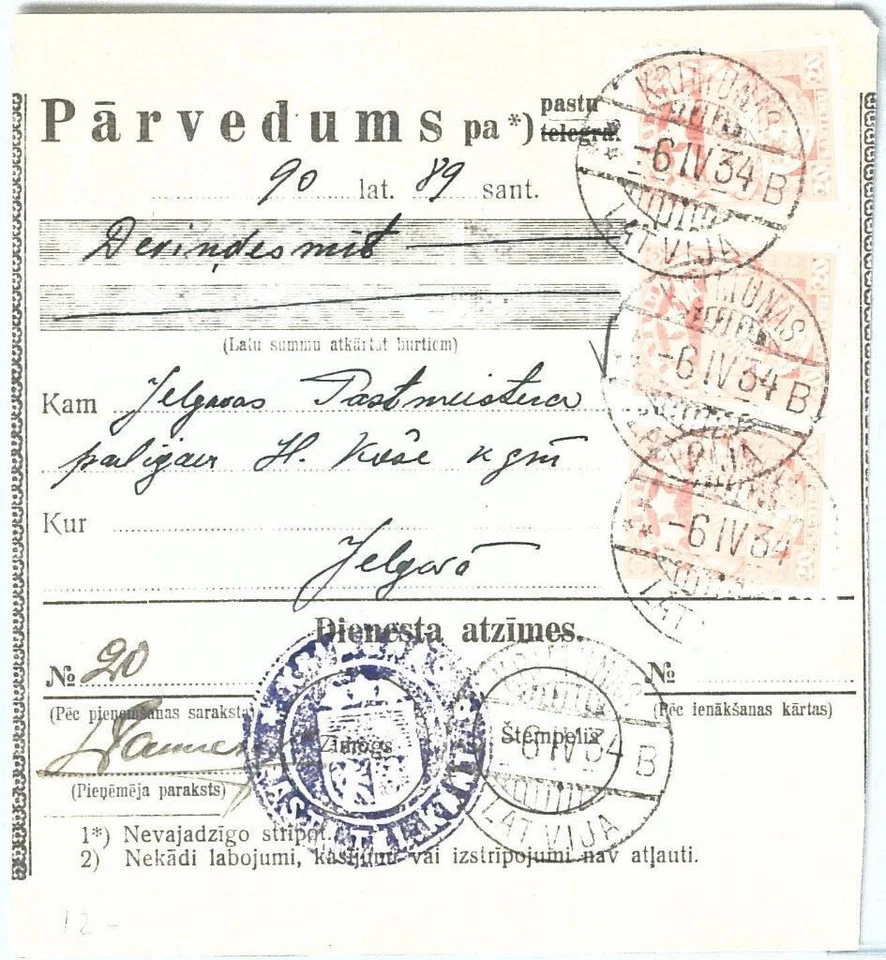 Pārvedums pa*) pastu
telegra
90 lat. 89 sant.
Deviņdesmit
(Latu summu atkārtot burtiem)
Kam Jelgavas Pastmeistera
paligam H. Kvče kgm
Kur
Jelgavā
Dienesta atzīmes.
№ 20
№
(Pēc pieņemšanas saraksta)
(Pēc ienākšanas kārtas)
Zīmogs
Štempelis
(Pieņēmēja paraksts)
1*) Nevajadzīgo strīpot.
2) Nekādi labojumi, kasījumi vai izstrīpojumi nav atļauti.
KRIMUNAS
-6 IV 34 B
LATVIJA
KRIMUNAS
-6 IV 34 B
LATVIJA
-6 IV 34
LAT
KRIMUNAS
-6 IV 34 B
LATVIJA
20
20
20
12-